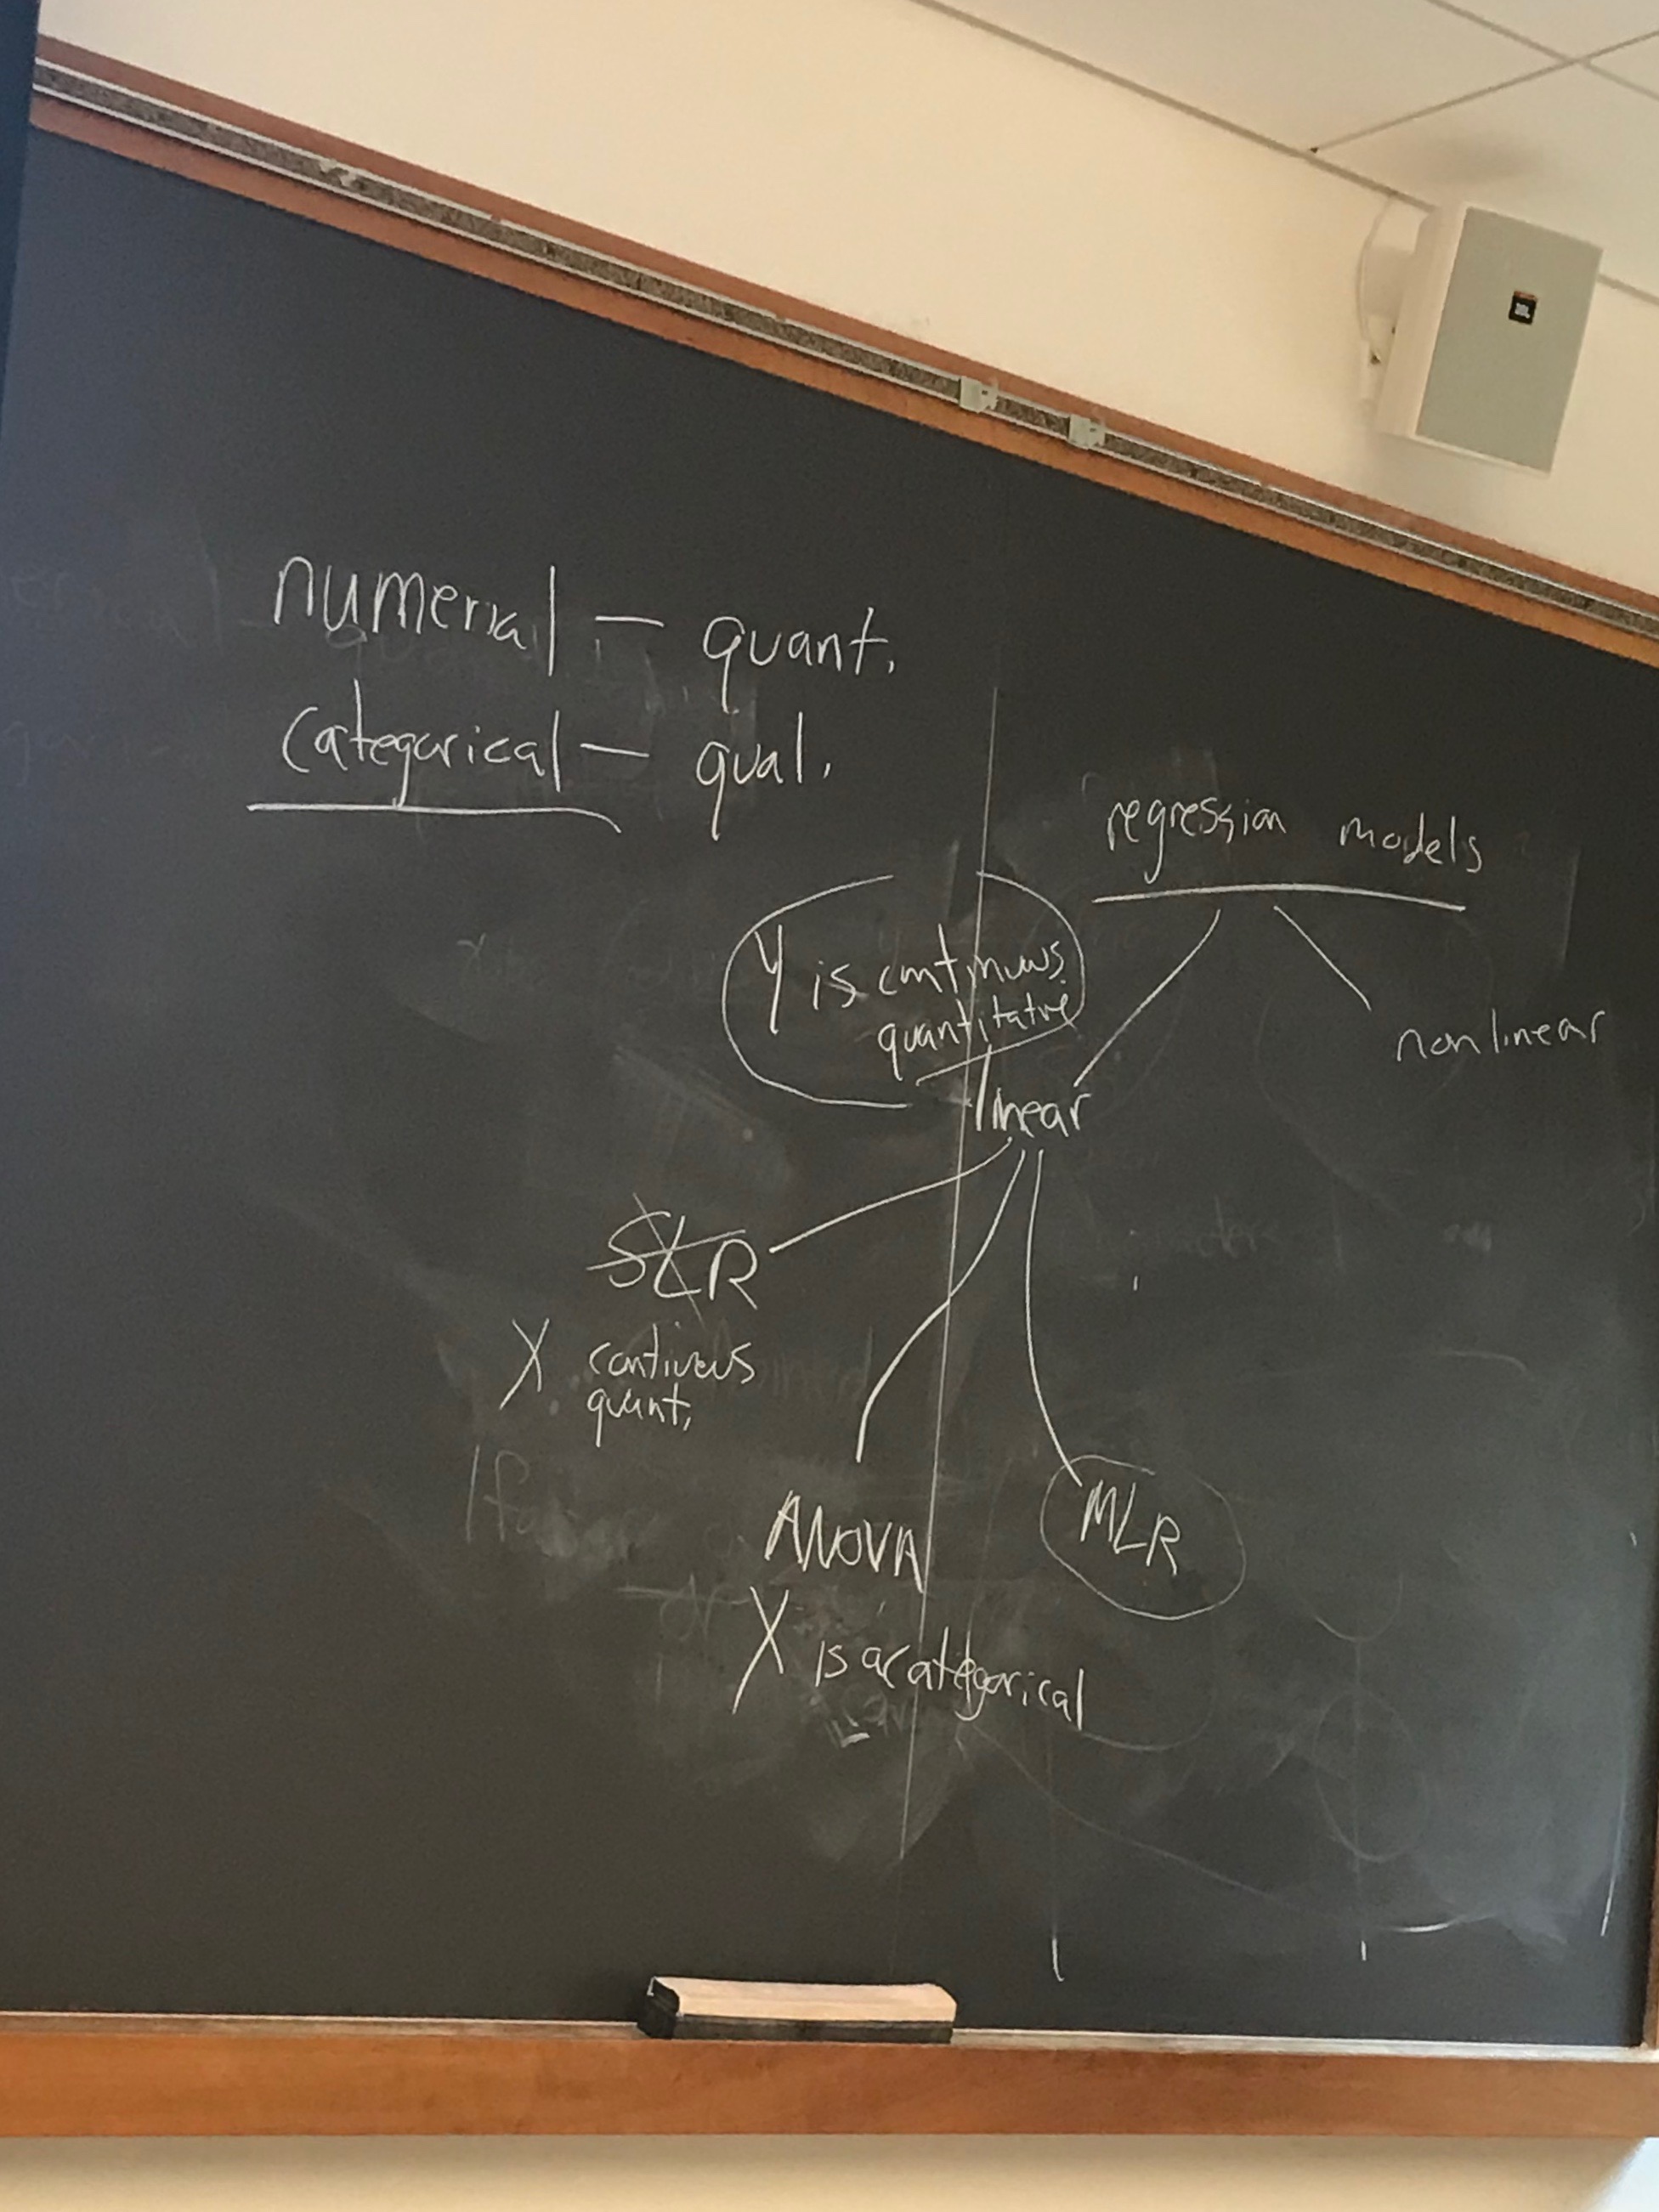 numerical — quant.
categorical — qual.
regression models
Y is continuous
quantitative
nonlinear
linear
SLR
X continuous
quant.
ANOVA
MLR
X is a categorical
JBL